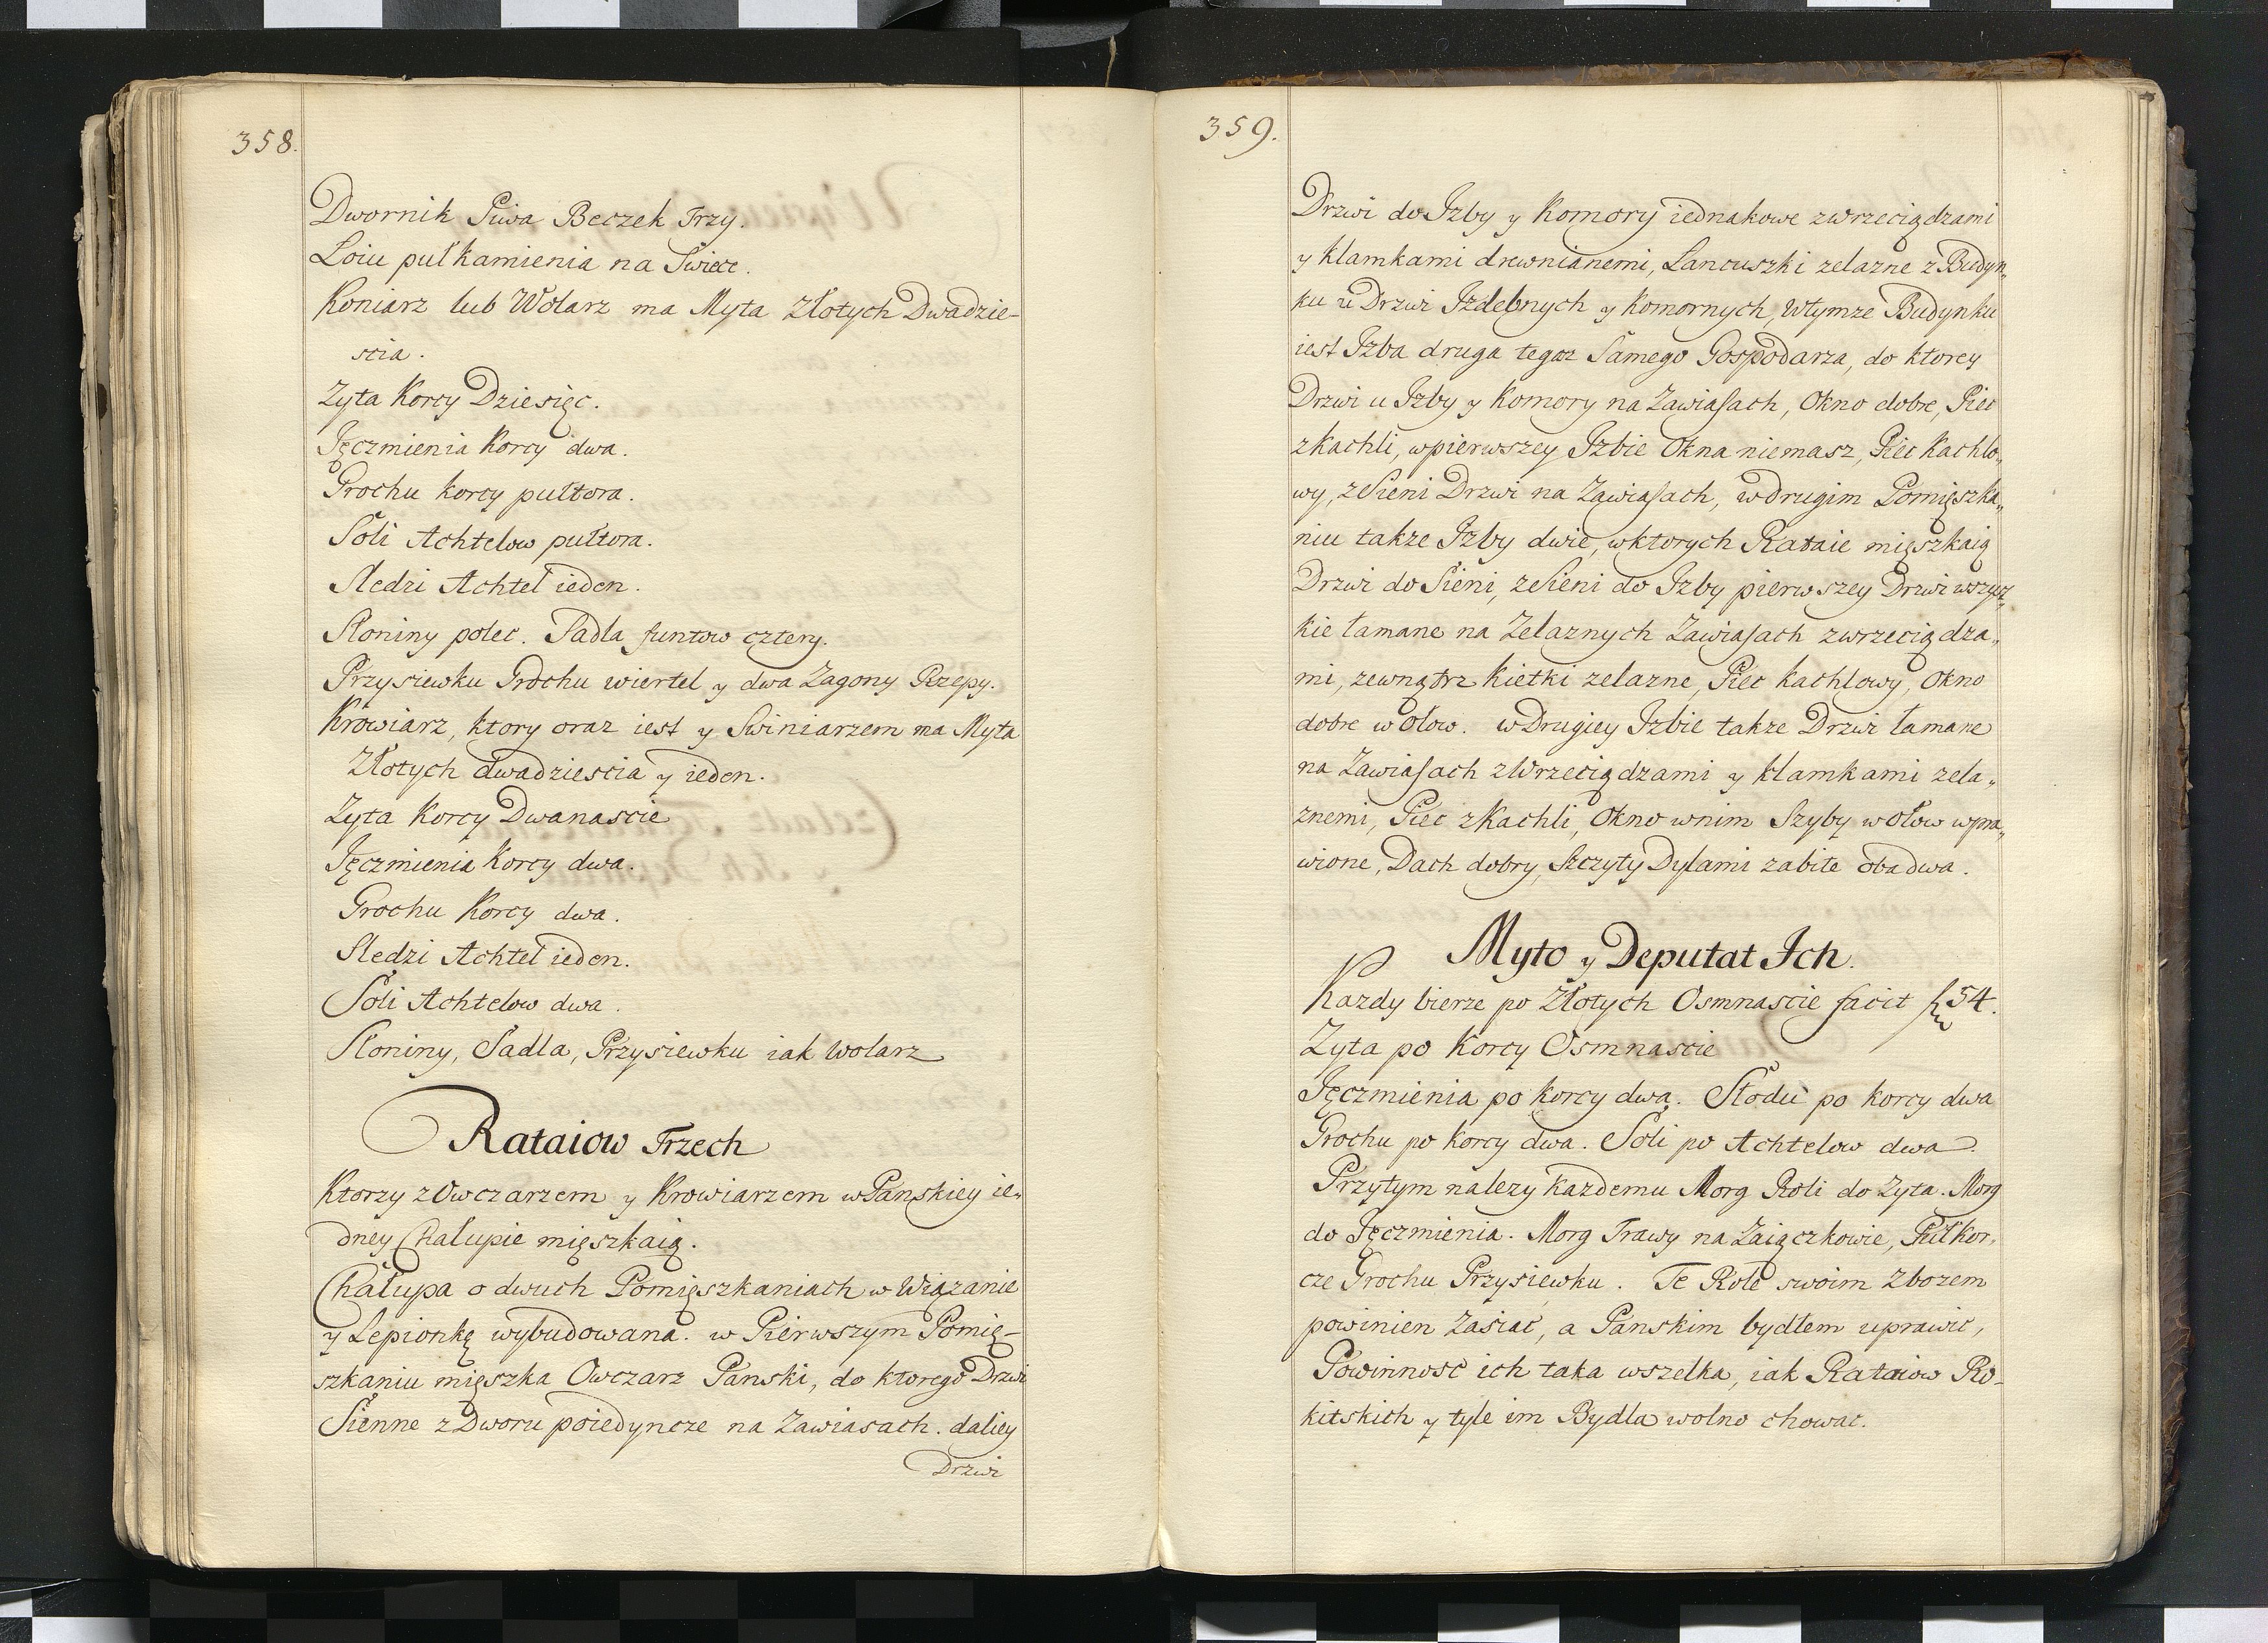 358.
Dwornik Piwa Beczek Trzy.
Loiu puł kamienia na Swiece.
Koniarz lub Wolarz ma Myta Złotych Dwadzie-
scia.
Zyta Korcy Dziesięc.
Jęczmienia Korcy dwa.
Grochu korcy pułtora.
Soli Achtelow pułtora.
Sledzi Achtel ieden.
Słoniny połec. Sadla funtow cztery.
Przysiewku Grochu wiertel y dwa Zagony Rzepy.
Krowiarz, ktory oraz iest y Swiniarzem ma Myta
Złotych dwadziescia y ieden.
Zyta Korcy Dwanascie
Jęczmienia Korcy dwa.
Grochu Korcy dwa.
Sledzi Achtel ieden.
Soli Achtelow dwa.
Słoniny, Sadla, Przysiewku iak Wolarz
Rataiow Trzech
Ktorzy z Owczarzem y Krowiarzem w Panskiey ie„
dney Chalupie mięszkaią.
Chałupa o dwuch Pomięszkaniach w Wiązanie
y Lepionkę wybudowana. w Pierwszym Pomię-
szkaniu mięszka Owczarz Panski, do ktorego Drzwi
Sienne z Dworu poiedyncze na Zawiasach. daliey
Drzwi
359.
Drzwi do Jzby y Komory iednakowe z wrzeciądzami
y klamkami drewnianemi, Lancuszki zelazne z Budyn„
ku u Drzwi Jzdebnych y Komornych, w tymze Budynku
iest Jzba druga tegoz Samego Gospodarza, do ktorey
Drzwi u Jzby y Komory na Zawiasach, Okno dobre, Piec
z kachli, w pierwszey Jzbie Okna niemasz, Piec Kachlo„
wy, z Sieni Drzwi na Zawiasach, w drugim Pomięszka„
niu takze Jzby dwie, w ktorych Rataie mięszkaią
Drzwi do Sieni, ze Sieni do Jzby pierwszey Drzwi wszyst„
kie łamane na Zelaznych Zawiasach z wrzeciądza„
mi, zewnątrz kietki zelazne, Piec kachlowy, Okno
dobre w ołow. w Drugiey Jzbie takze Drzwi łamane
na Zawiasach z Wrzeciądzami y klamkami zela„
znemi, Piec z Kachli, Okno w nim Szyby w Ołow wpra„
wione, Dach dobry, Szczyty Dylami zabite obadwa.
Myto y Deputat Jch.
Kazdy bierze po Złotych Osmnascie facit fl 54.
Zyta po Korcy Osmnascie
Jęczmienia po korcy dwa. Słodu po korcy dwa
Grochu po korcy dwa. Soli po Achtelow dwa.
Przytym nalezy kazdemu Morg Roli do Zyta. Morg
do Jęczmienia. Morg Trawy na Zaiączkowie, Puł kor„
cze Grochu Przysiewku. Te Role swoim Zbozem
powinien Zasiać, a Panskim bydłem uprawić,
Powinnosć ich taka wszelka, iak Rataiow Ro-
kitskich y tyle im Bydla wolno chowac.